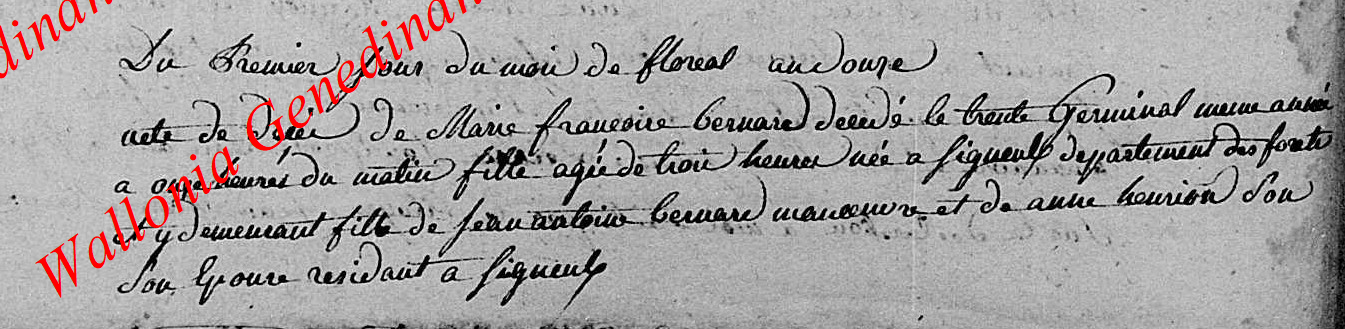 Du Premier Jour du moi de floreal an douze
acte de décè de Marie françoise bernard decedé le trente Germinal meme année
a onze heures du matin fille agée de troi heures née a Signeulx departement des forets
et y demeurant fille de Jean antoine bernard manoeuvre et de anne henrion Son
Son Epouse residant a Signeulx
Wallonia Genedinan